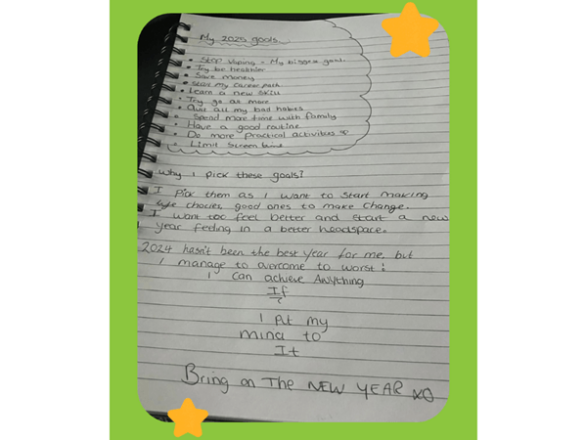 My 2025 goals
• Stop Vaping - My biggest goal.
• Try be healthier
• Save money
• Start my career path
• Learn a new skill
• Try go out more
• Quit all my bad habits
• Spend more time with family
• Have a good routine
• Do more practical activities
• Limit screen time
Why I pick these goals?
I pick them as I want to start making
life choices, good ones to make change.
I want too feel better and start a new
year feeling in a better headspace.
2024 hasn't been the best year for me, but
I manage to overcome to worst!
I can achieve Anything
If
I Put my
mind to
It
Bring on The NEW YEAR XO